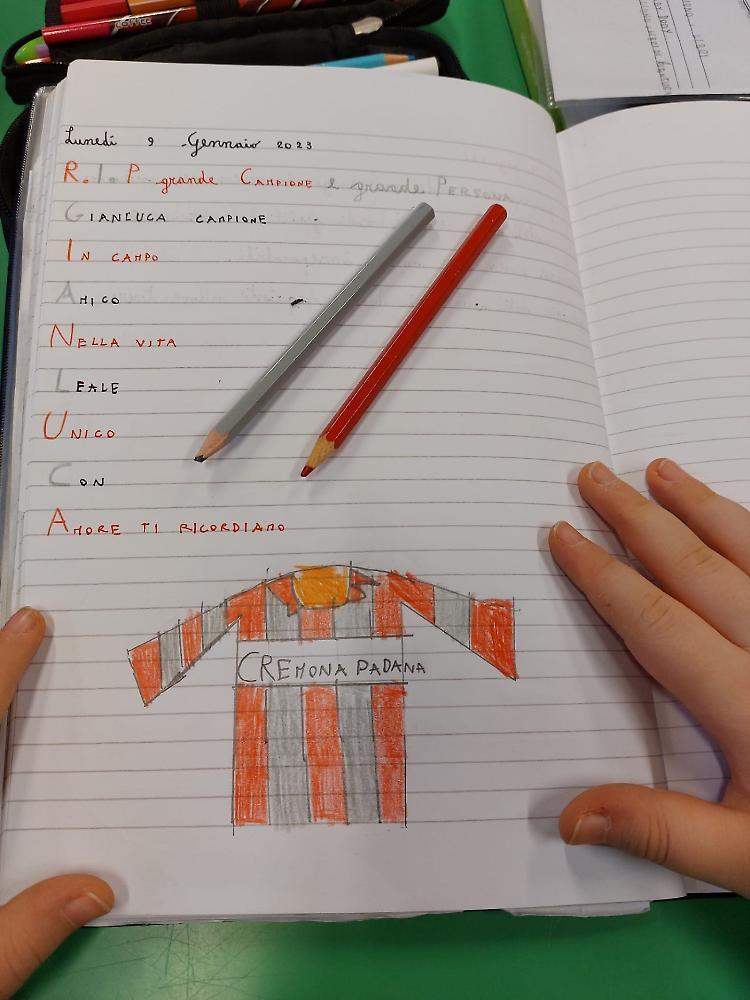 Lunedì 9 Gennaio 2023
R.I.P grande CAMPIONE e grande PERSONA
GIANLUCA CAMPIONE
IN CAMPO
AMICO
NELLA VITA
LEALE
UNICO
CON
AMORE TI RICORDIAMO
CREMONA PADANA